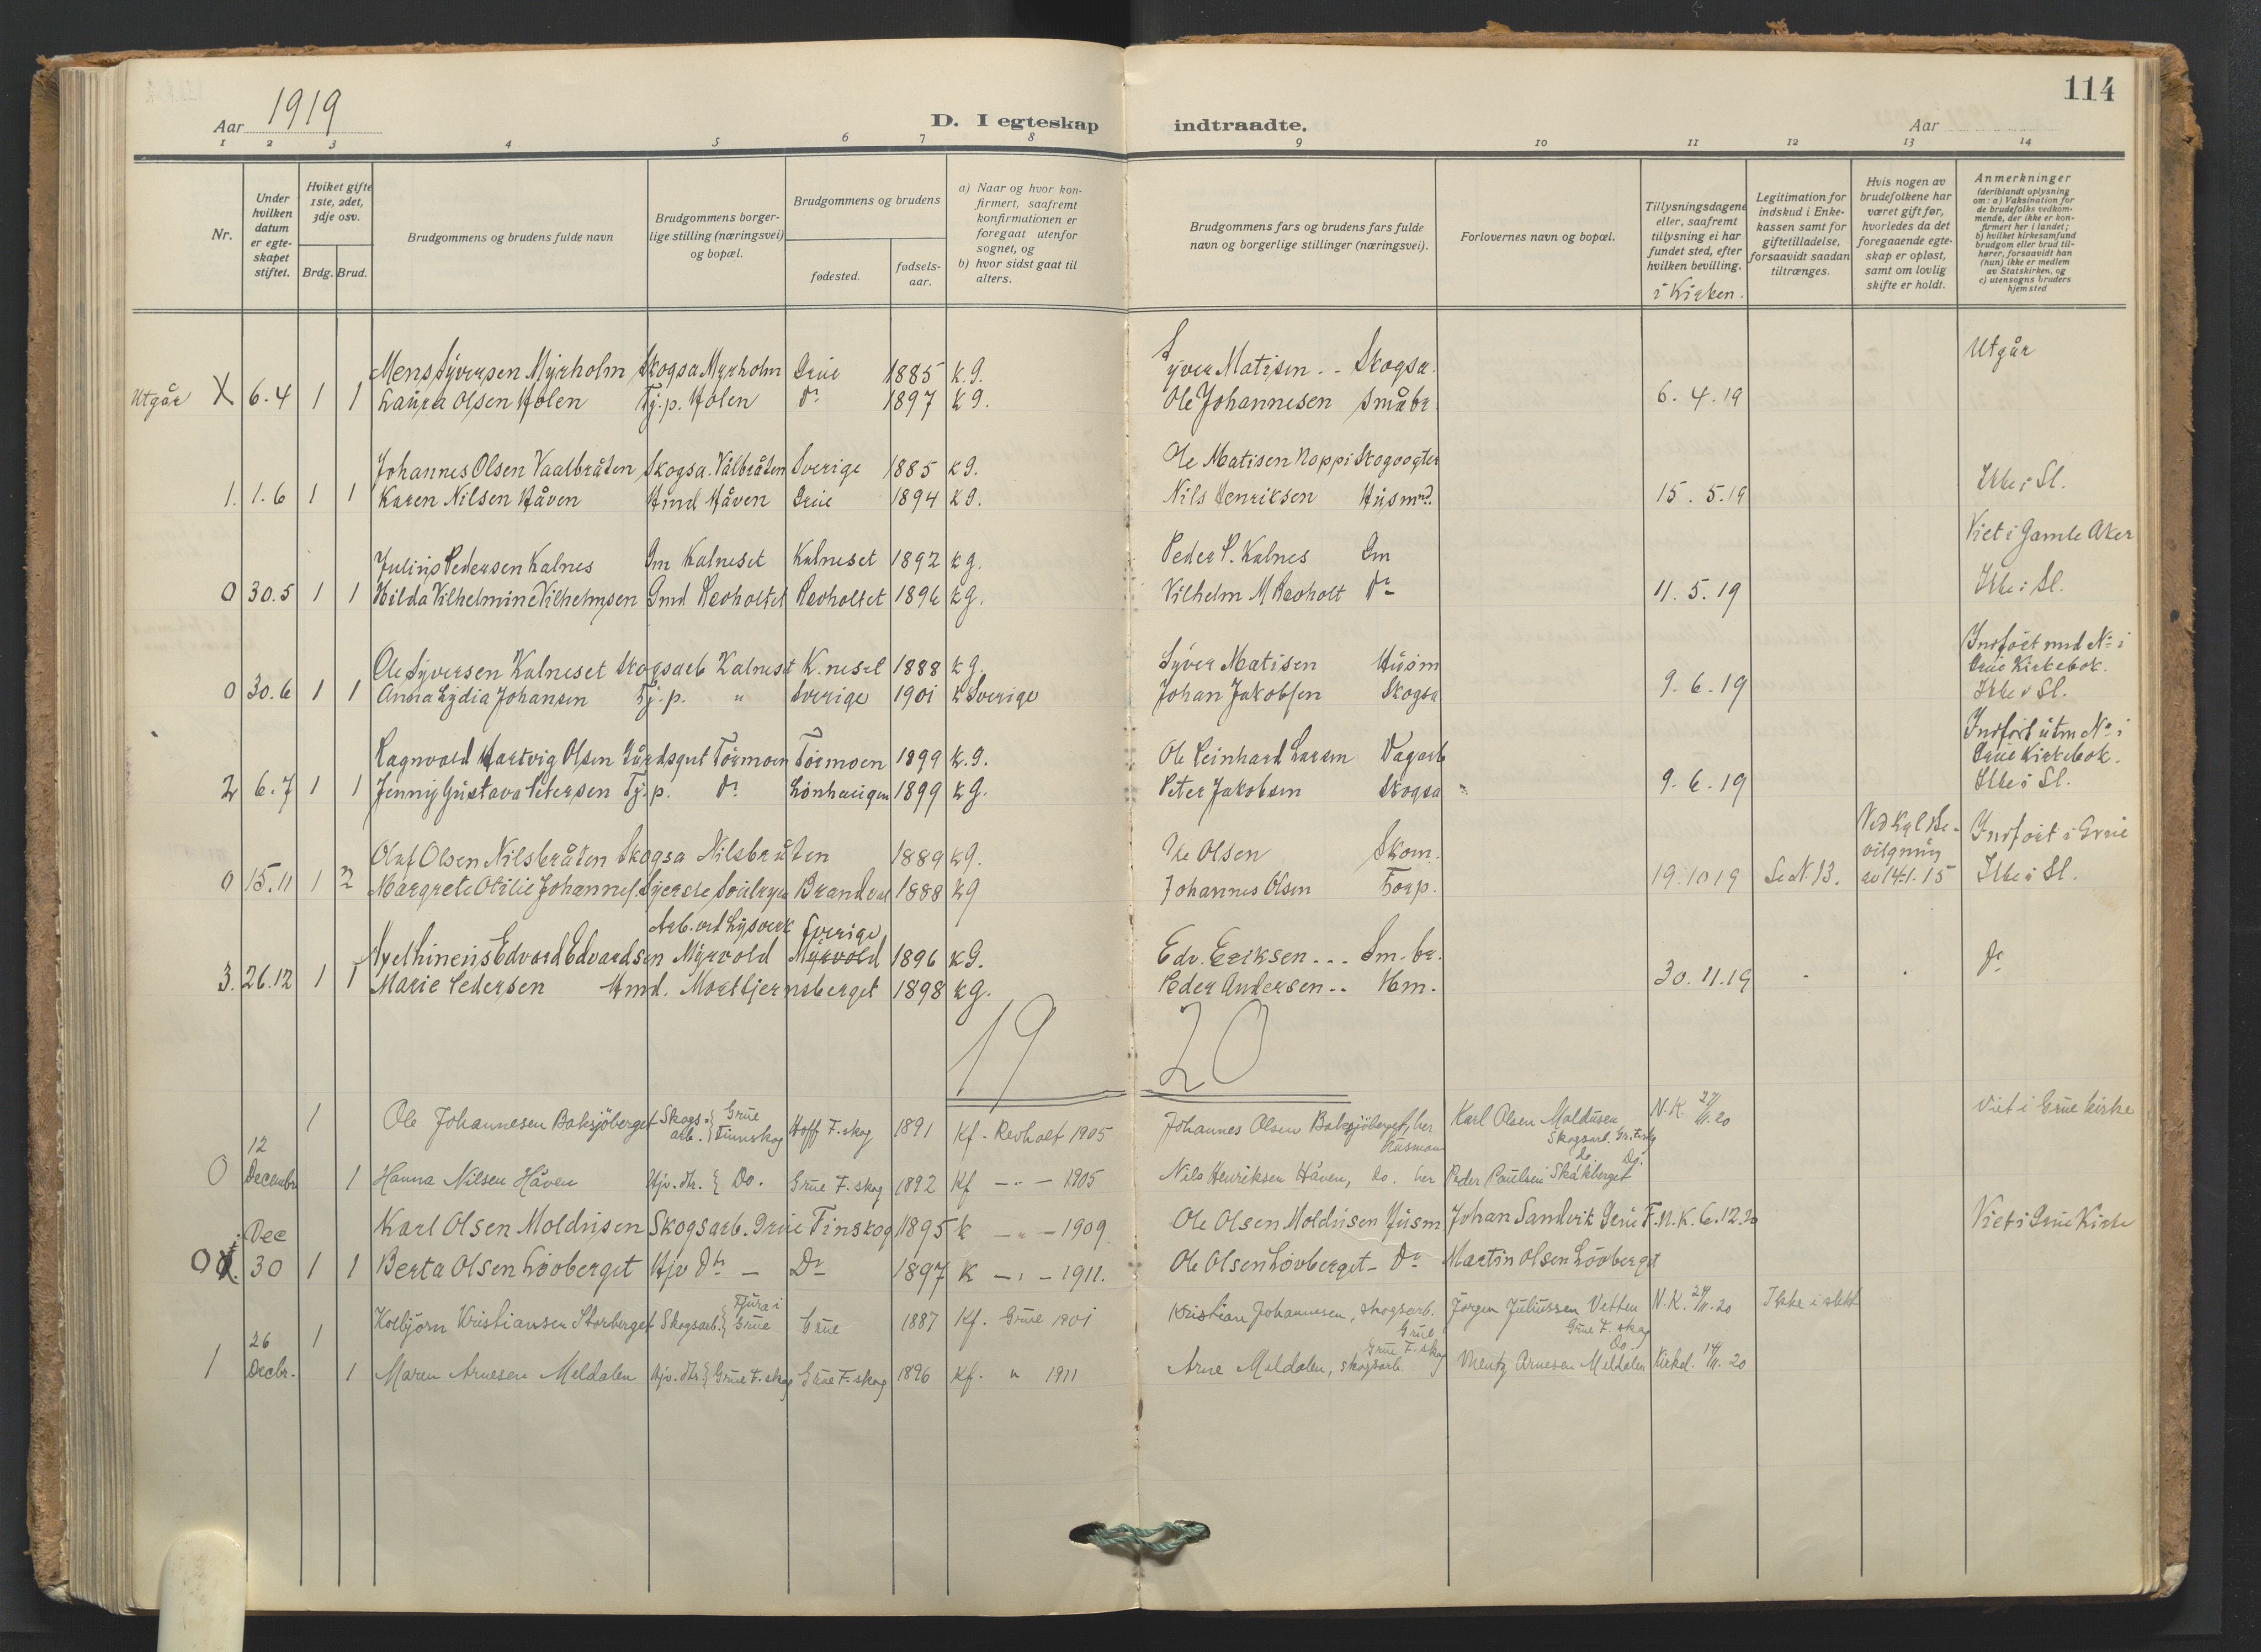 114
Aar 1919
D. I egteskap indtraadte.
Aar
1 2 3 4 5 6 7 8 9 10 11 12 13 14
Nr.
Under hvilken datum er egteskapet stiftet.
Hviket gifte 1ste, 2det, 3dje osv.
Brdg. Brud.
Brudgommens og brudens fulde navn
Brudgommens borgerlige stilling (næringsvei) og bopæl.
Brudgommens og brudens
fødested.
fødselsaar.
a) Naar og hvor konfirmert, saafremt konfirmationen er foregaat utenfor sognet, og
b) hvor sidst gaat til alters.
Brudgommens fars og brudens fars fulde navn og borgerlige stillinger (næringsvei).
Forlovernes navn og bopæl.
Tillysningsdagene eller, saafremt tillysning ei har fundet sted, efter hvilken bevilling.
i Kirken.
Legitimation for indskud i Enkekassen samt for giftetilladelse, forsaavidt saadan tiltrænges.
Hvis nogen av brudefolkene har været gift før, hvorledes da det foregaaende egteskap er opløst, samt om lovlig skifte er holdt.
Anmerkninger (deriblandt oplysning om: a) Vaksination for de brudefolks vedkommende, der ikke er konfirmert her i landet; b) hvilket kirkesamfund brudgom eller brud tilhører, forsaavidt han (hun) ikke er medlem av Statskirken, og c) utensogns bruders hjemsted
Mens Syversen Myrholm Skogsa Myrholm Grue 1885 k.g. Syver Matisen .. Skogsa. Utgår
Utgår X 6.4 1 1 Laura Olsen Holen Tj.p. Holen Do 1897 kg. Ole Johannesen Småbr. 6.4.19
Johannes Olsen Vaalbråten Skogsa. Vålbråten Sverige 1885 kg. Ole Matisen Noppi Skogvogter
1. 1.6 1 1 Karen Nilsen Håven Hmd Håven Grue 1894 kg. Nils Henriksen Husmd. 15.5.19 Ikke i Sl.
Julius Pedersen Kalnes Gm Kalneset Kalneset 1892 kg. Peder P. Kalnes Gm Viet i Gamle Aker
0 30.5 1 1 Hilda Vilhelmine Vilhelmsen Gmd Revholtet Revholtet 1896 kg. Vilhelm M Revholt Do 11.5.19 Ikke i Sl.
Ole Syversen Kalneset Skogsarb Kalneset K.neset 1888 kg. Syver Matisen Husm Indført med No i Grue Kirkebok.
0 30.6 1 1 Anna Lydia Johansen Tj.p. " Sverige 1901 k Sverige Johan Jakobsen Skogsa 9.6.19 Ikke i Sl.
Ragnvald Hartvig Olsen Gårdsgut Tørmoen Tørmoen 1899 k.g. Ole Reinhard Larsen Dagarb Indført uten No i Grue Kirkebok.
2 6.7 1 1 Jenny Gustava Petersen Tj.p. Do Lønhaugen 1899 kg. Peter Jakobsen Skogsa 9.6.19 Ikke i Sl.
Olaf Olsen Nilsbråten Skogsa Nilsbråten 1889 kg. Ole Olsen Skom. Ved Kgl Bevilgning av 14.1.15 Indført i Grue
0 15.11 1 2 Margrete Otilie Johannes. Brandval 1888 kg Johannes Olsen Forp. 19.10 19 Se N. 13. Ikke i Sl.
Arb. ved Lysverk Sverige
Axel Edvard Edvardsen Myrvold Myrvold 1896 kg. Edv. Eriksen ... Sm.br. Do
3. 26.12 1 1 Marie Pedersen Hmd. Mortbjernsberget 1898 kg. Peder Andersen .. Hm. 30.11.19
1920
1 Ole Johannesen Baksjøberget Skogsarb. Grue Finnskog Hoff F.skog 1891 Kf. Revholt 1905 Johannes Olsen Baksjøberget, her Husmann Karl Olsen Moldusen Skogsarb. Gr. Fskg N.K. 27/11.20 Viet i Grue kirke
0 12 Decembr 1 Hanna Nilsen Håven Hjv. dtr. Do. Grue F.skog 1892 Kf — " — 1905 Nils Henriksen Håven, do. her Peder Paulsen Skåkberget do. Do.
Dec Karl Olsen Moldusen Skogsarb. Grue Finskog 1895 k — " — 1909. Ole Olsen Moldusen Husm Johan Sandvik Grue F. N.K. 6.12.20 Viet i Grue Kirke
0 30 1 1 Berta Olsen Løvberget Hjv Dtr — Do 1897 K — " — 1911. Ole Olsen Løvberget - Do Martin Olsen Løvberget
Kolbjørn Kristiansen Storberget Skogsarb. Tjura i Grue Grue 1887 Kf. Grue 1901 Kristian Johannesen, skogsarb. Grue Jørgen Juliussen Vetten Grue F. skog N.K. 20 Ikke i slekt
1 26 Decbr. 1 1 Maren Arnesen Meldalen Hjv. Dtr. Grue F. skog Grue F. skog 1896 Kf. " 1911 Arne Meldalen, skogsarb. Grue F. skog Mentz Arnesen Meldalen Do. Kirkel. 14/11.20